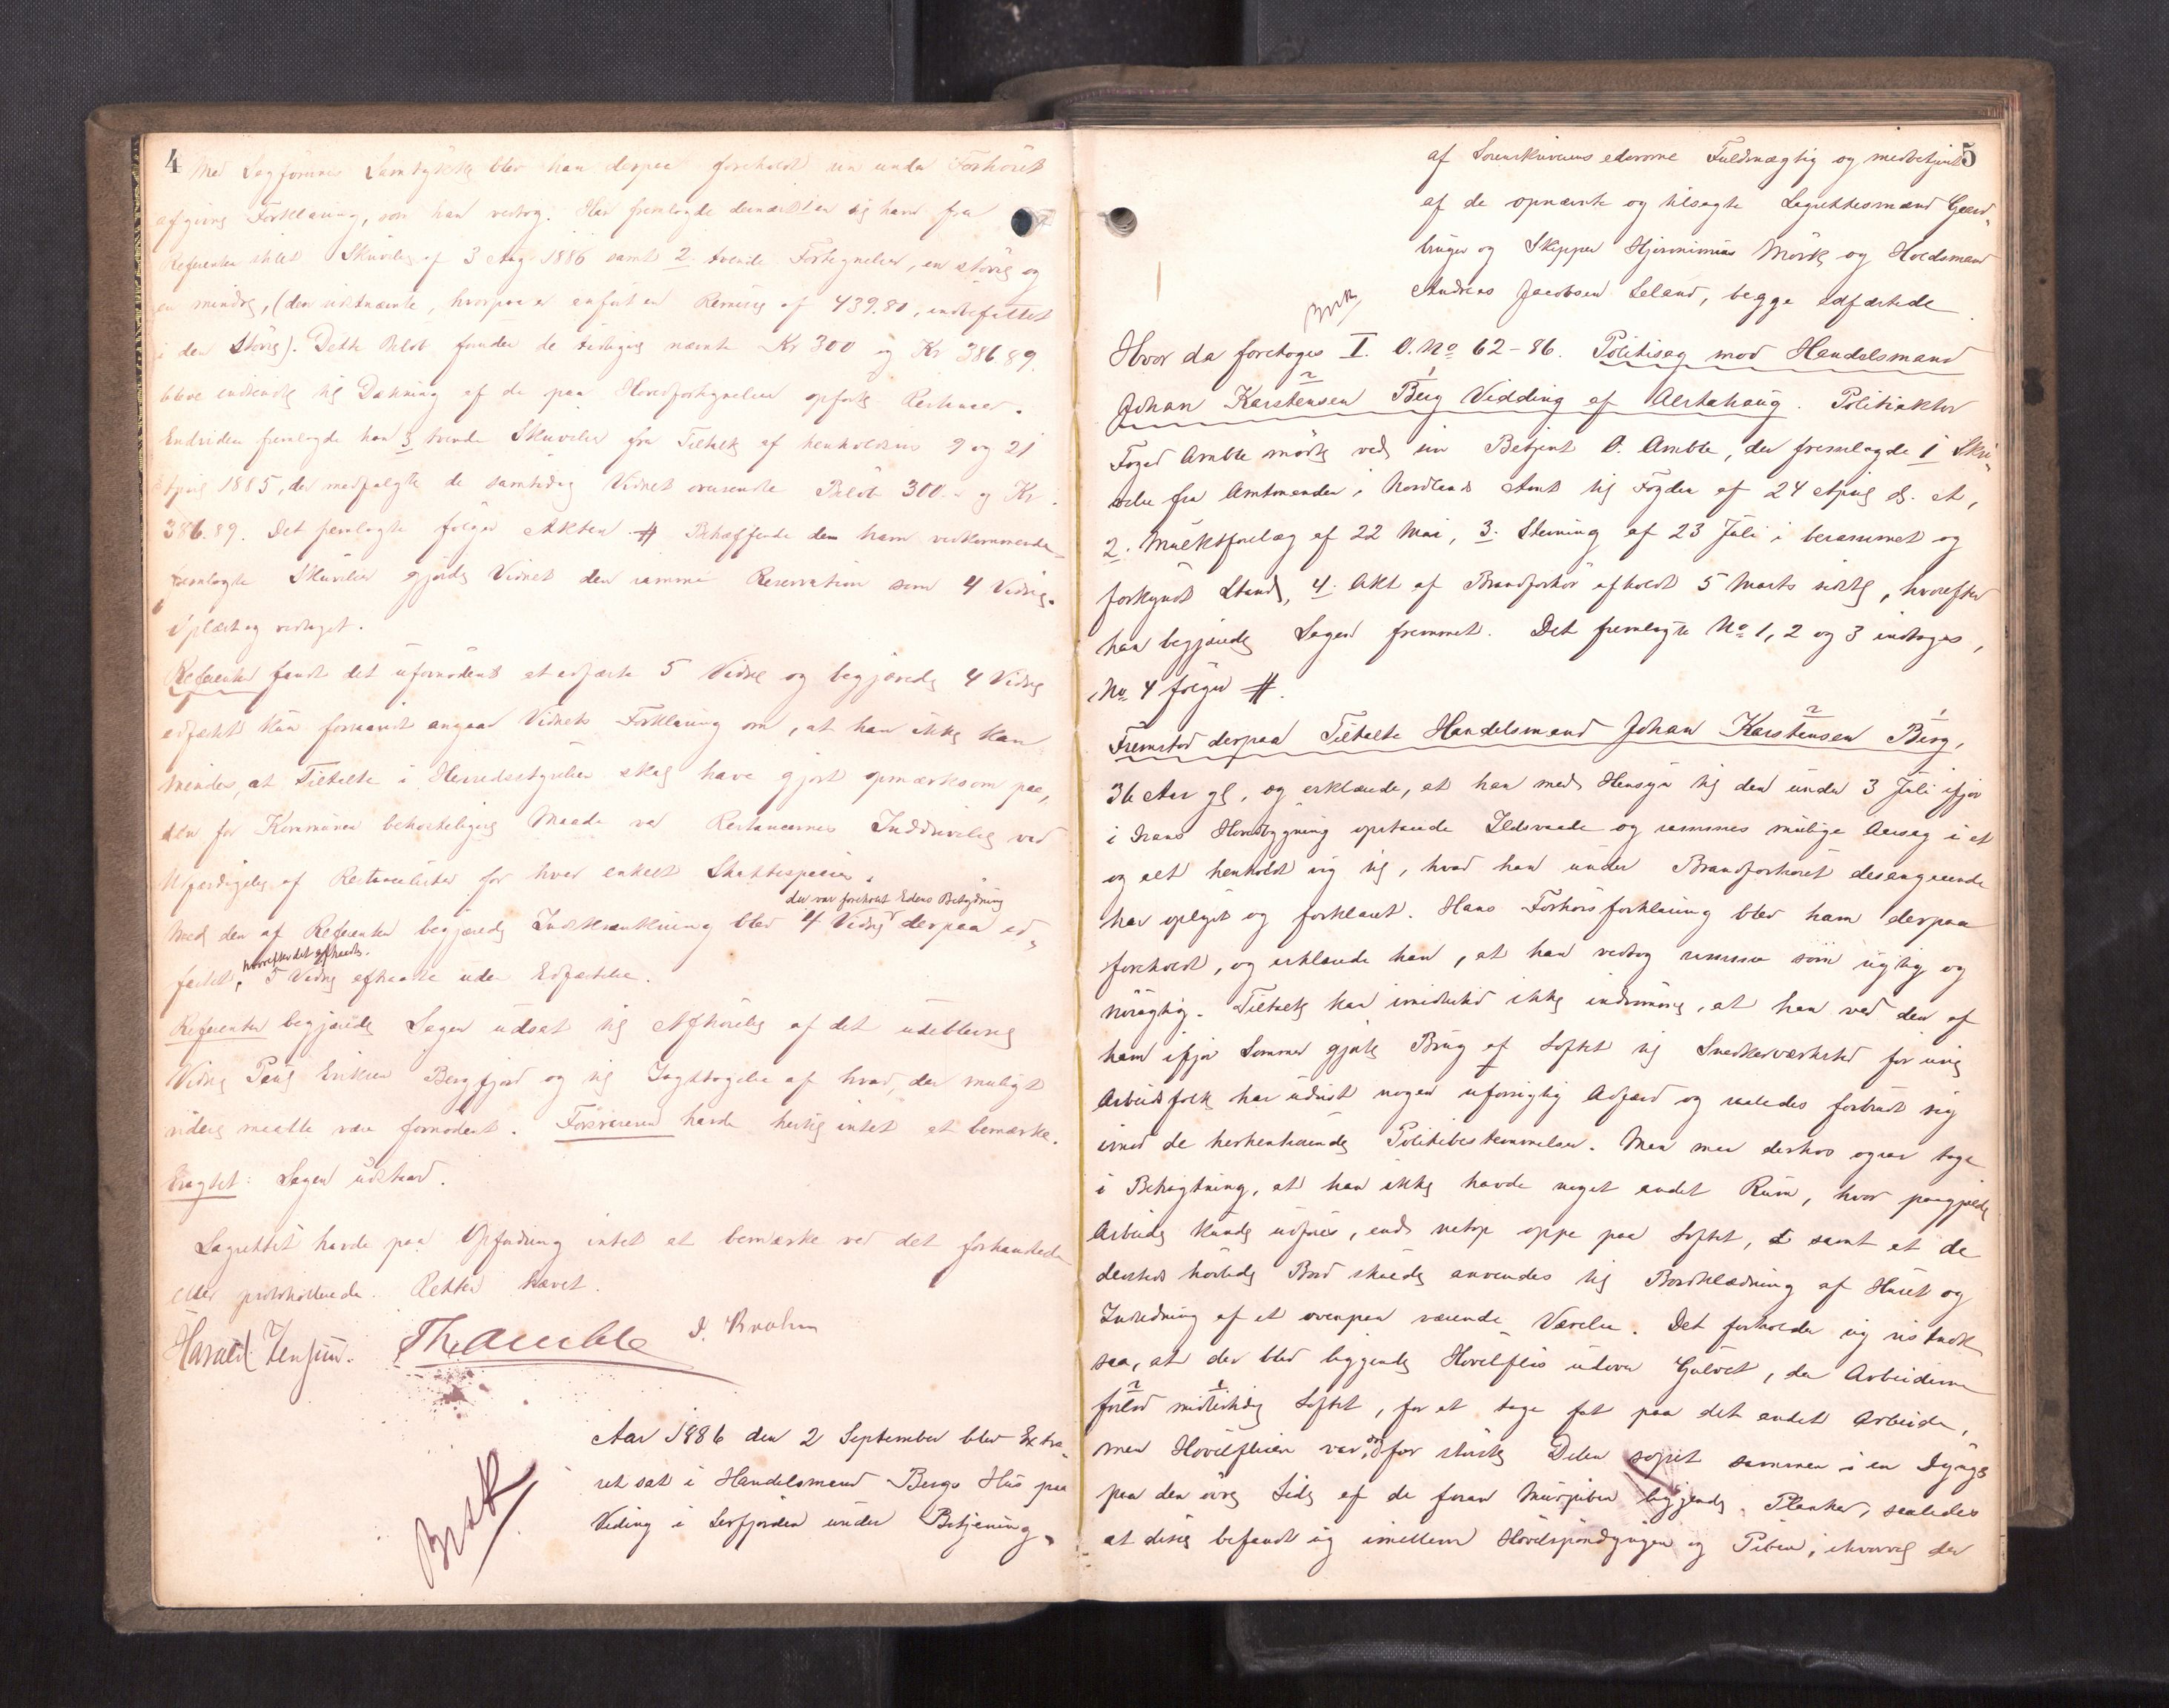 4
Med Lagførernes Samtykke blev han derpaa foreholdt sin under Forhöret
afgivne Forklaring, som han vedtog. Han fremlagde dernæst en til ham fra
Referenten stilet Skrivelse af 3 Aug 1886 samt 2 tvende Fortegnelser, en större og
en mindre, (den sidstnævnte, hvorpaa er anført en Remisse af 439.80, indbefattet
i den större). Dette Belöb foruden de tidligere nævnte Kr 300 og Kr 386.89.
bleve indsendte til Dækning af de paa Hovedfortegnelsen opførte Restancer.
Endvidere fremlagde han 3 tvende Skrivelser fra Tiltalte af henholdsvis 9 og 21
April 1885, der medfulgte de samtidig Vidnet oversendte Belöb 300.- og Kr.
386.89. Det fremlagte følger Akten #. Betræffende den ham vedkommende
fremlagte Skrivelse gjorde Vidnet den samme Reservation som 4 Vidne.
Oplæst og vedtaget.
Referenten fandt det ufornödent at edfæste 5 Vidne og begjærede 4 Vidne
edfæstet kun forsaavidt angaar Vidnets Forklaring om, at han ikke kan
mindes, at Tiltalte i Herredsstyrelsen skal have gjort opmærksom paa,
den for Kommunen bekosteligere Maade ved Restancernes Inddrivelse ved
Udfærdigelse af Restancelister for hver enkelt Skattespecies.
der var foreholdt Edens Betydning
Med den af Referenten begjærede Indskrænkning blev 4 Vidne derpaa ed-
hvorefter det afhaadtes.
fæstet, 5 Vidne afhaadte uden Edfæstelse.
Referenten begjærede Sagen udsat til Afhörelse af det udeblevne
Vidne Paul Eriksen Bergfjord og til Iagttagelse af hvad, der muligt
videre maatte være fornödent. Forsvareren havde hertil intet at bemærke.
Eragtet: Sagen udstaar.
Lagrettet havde paa Opfordring intet at bemærke ved det forhandlede
eller protokollerede. Retten hævet.
Harald Jensen. Th. Amble J. Brohn
Aar 1886 den 2 September blev Extra-
ret sat i Handelsmand Bergs Hus paa
Viding i Leirfjorden under Betjening
5
af Sorenskriverens edsvorne Fuldmægtig og medbetjent
af de opnævnte og tilsagte Lagrettesmænd Gaard-
bruger og Skipper Hjeronimus Mörk og Hvedsmand
Andreas Jacobsen Leland, begge edfæstede
Hvor da foretoges I. O. No 62-86. Politisag mod Handelsmand
Johan Karstensen Berg Vidding af Alstahaug. Politiaktor
Foged Amble mödte ved sin Betjent O. Amble, der fremlagde 1 Skri-
velse fra Amtmanden i Nordlands Amt til Fogden af 24 April d. A,
2. Mulktsforelæg af 22 Mai, 3. Stevning af 23 Juli i berammet og
forkyndt Stand, 4. Akt af Brandforhör afholdt 5 Marts sidstl, hvorefter
han begjærede Sagen fremmet. Det fremlagte No 1, 2 og 3 indtoges,
No 4 følger #.
Fremstod derpaa Tiltalte Handelsmand Johan Karstensen Berg,
36 Aar gl, og erklærede, at han med Hensyn til den under 3 Juli ifjor
i hans Hovedbygning opstaaede Ildsvaade og sammes mulige Aarsag i et
og alt henholdt sig til, hvad han under Brandforhöret desangaaende
har oplyst og forklaret. Hans Forhörsforklaring blev ham derpaa
foreholdt, og erklærede han, at han vedtog samme som rigtig og
nöiagtig. Tiltalte kan imidlertid ikke indrömme, at han ved den af
ham ifjor Sommer gjorte Brug af Loftet til Snedkerværksted for sine
Arbeidsfolk har udvist nogen uforsigtig Adfærd og saaledes forbrudt sig
imod de herhenhørende Politibestemmelser. Man maa derhos ogsaa tage
i Betragtning, at han ikke havde noget andet Rum, hvor paagjældende
Arbeide kunde udføres, end netop oppe paa Loftet, samt at de
dersteds hövlede Bord skulde anvendes til Bordklædning af Huset og
Indredning af et ovenpaa værende Værelse. Det forholder sig vistnok
saa, at der blev liggende Hövelflis udover Gulvet, da Arbeiderne
forlod midlertidig Loftet, for at tage fat paa det andet Arbeide,
men Hövelflisen var for störste Delen sopet sammen i en Dynge
paa den övre Side af de foran Murpiben liggende Planker, saaledes
at disse befandt sig imellem Hövelspöndyngen og Piben, ihvorvel der